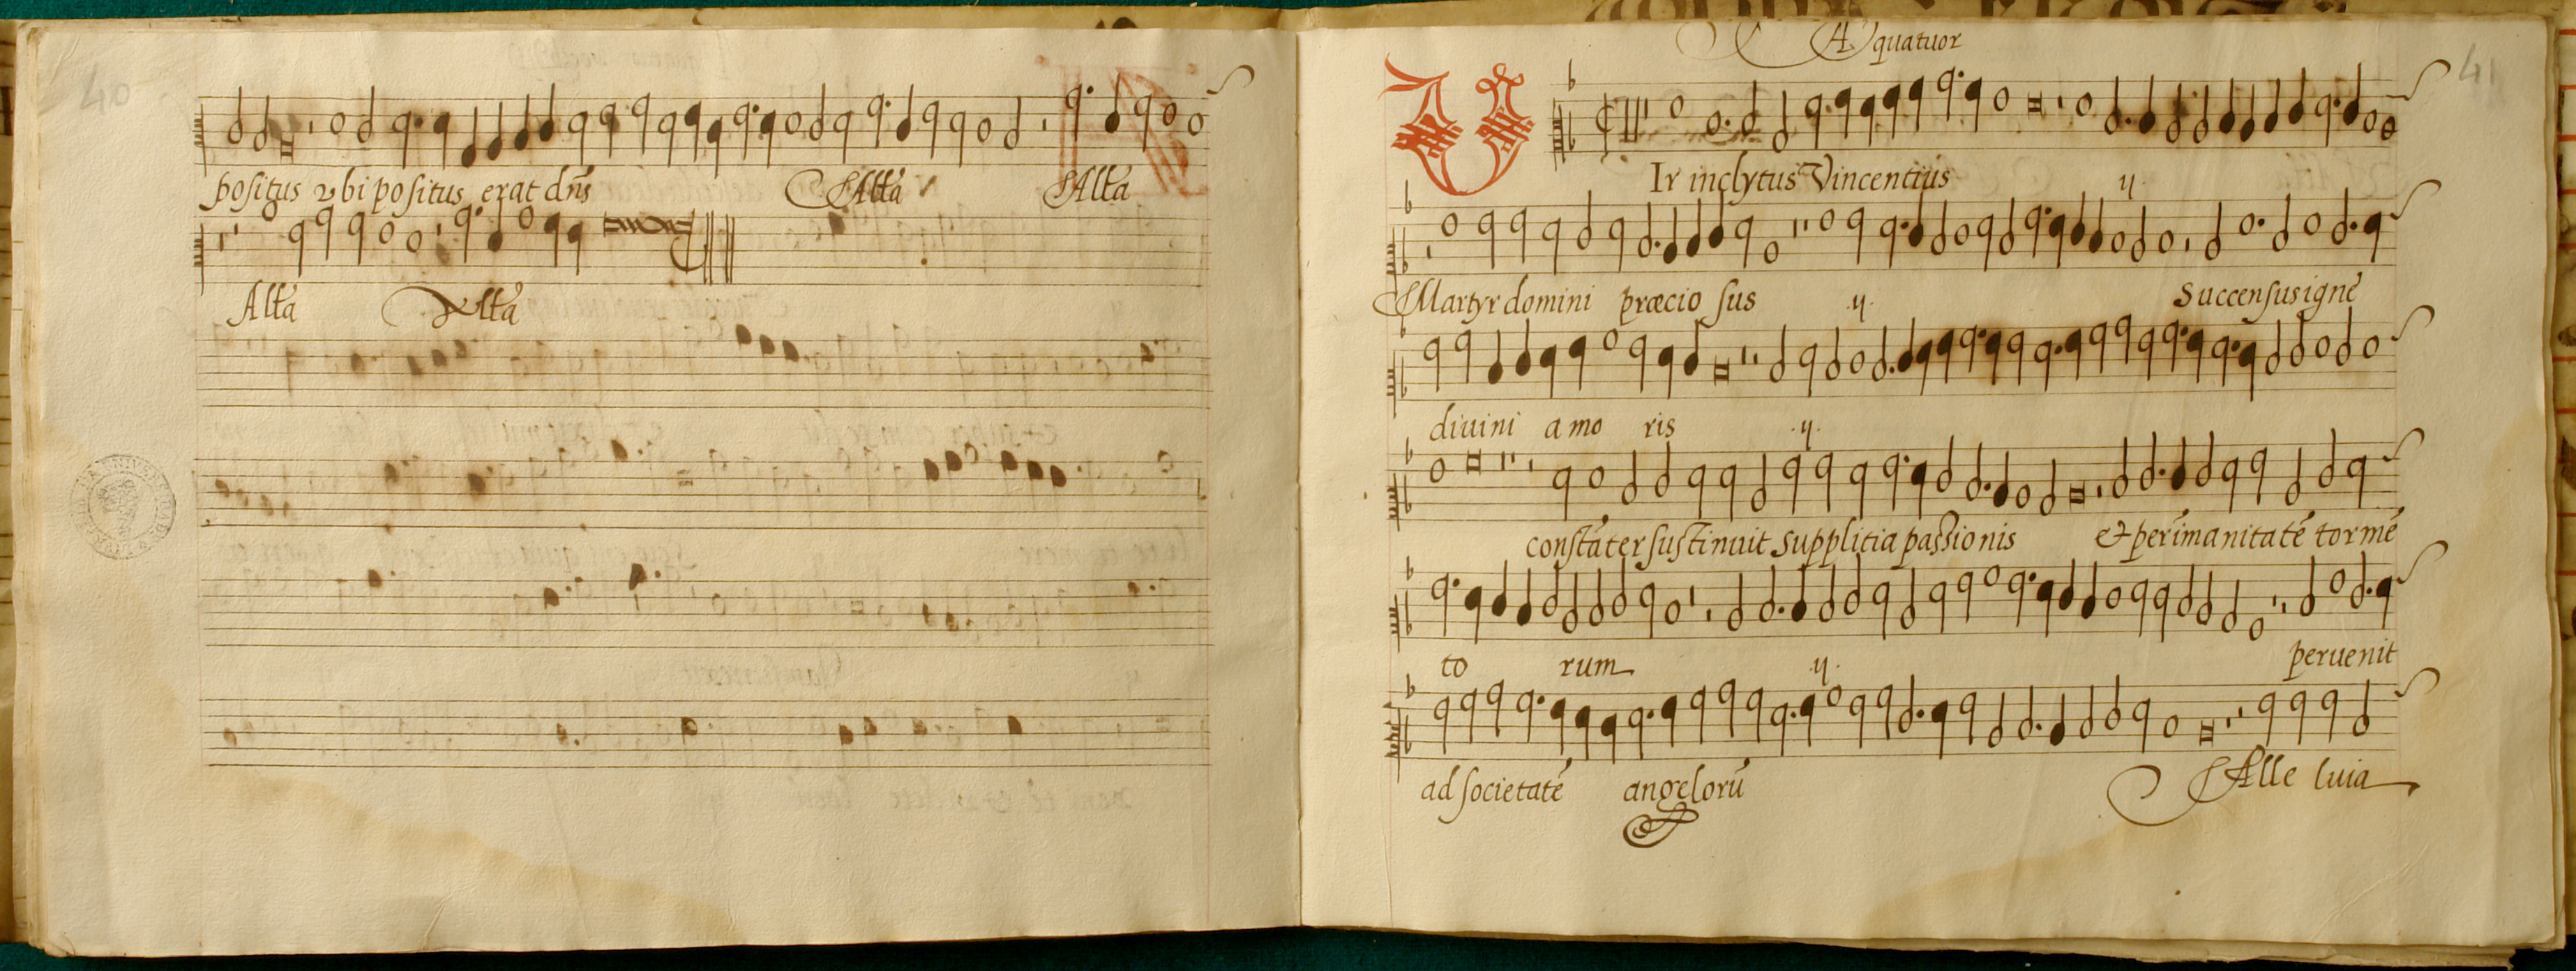 40
positus vbi positus erat dn̄s Allã Allã
Allã Allã
A quatuor
41
VIr inclytus Vincentius .ij.
Martyr domini præcio sus .ij. Succensus ignẽ
diuini amo ris .ij.
constãter sustinuit supplitia passionis & per ĩmanitatẽ tormẽ
to rum .ij. peruenit
ad societatẽ angelorũ Alle luia